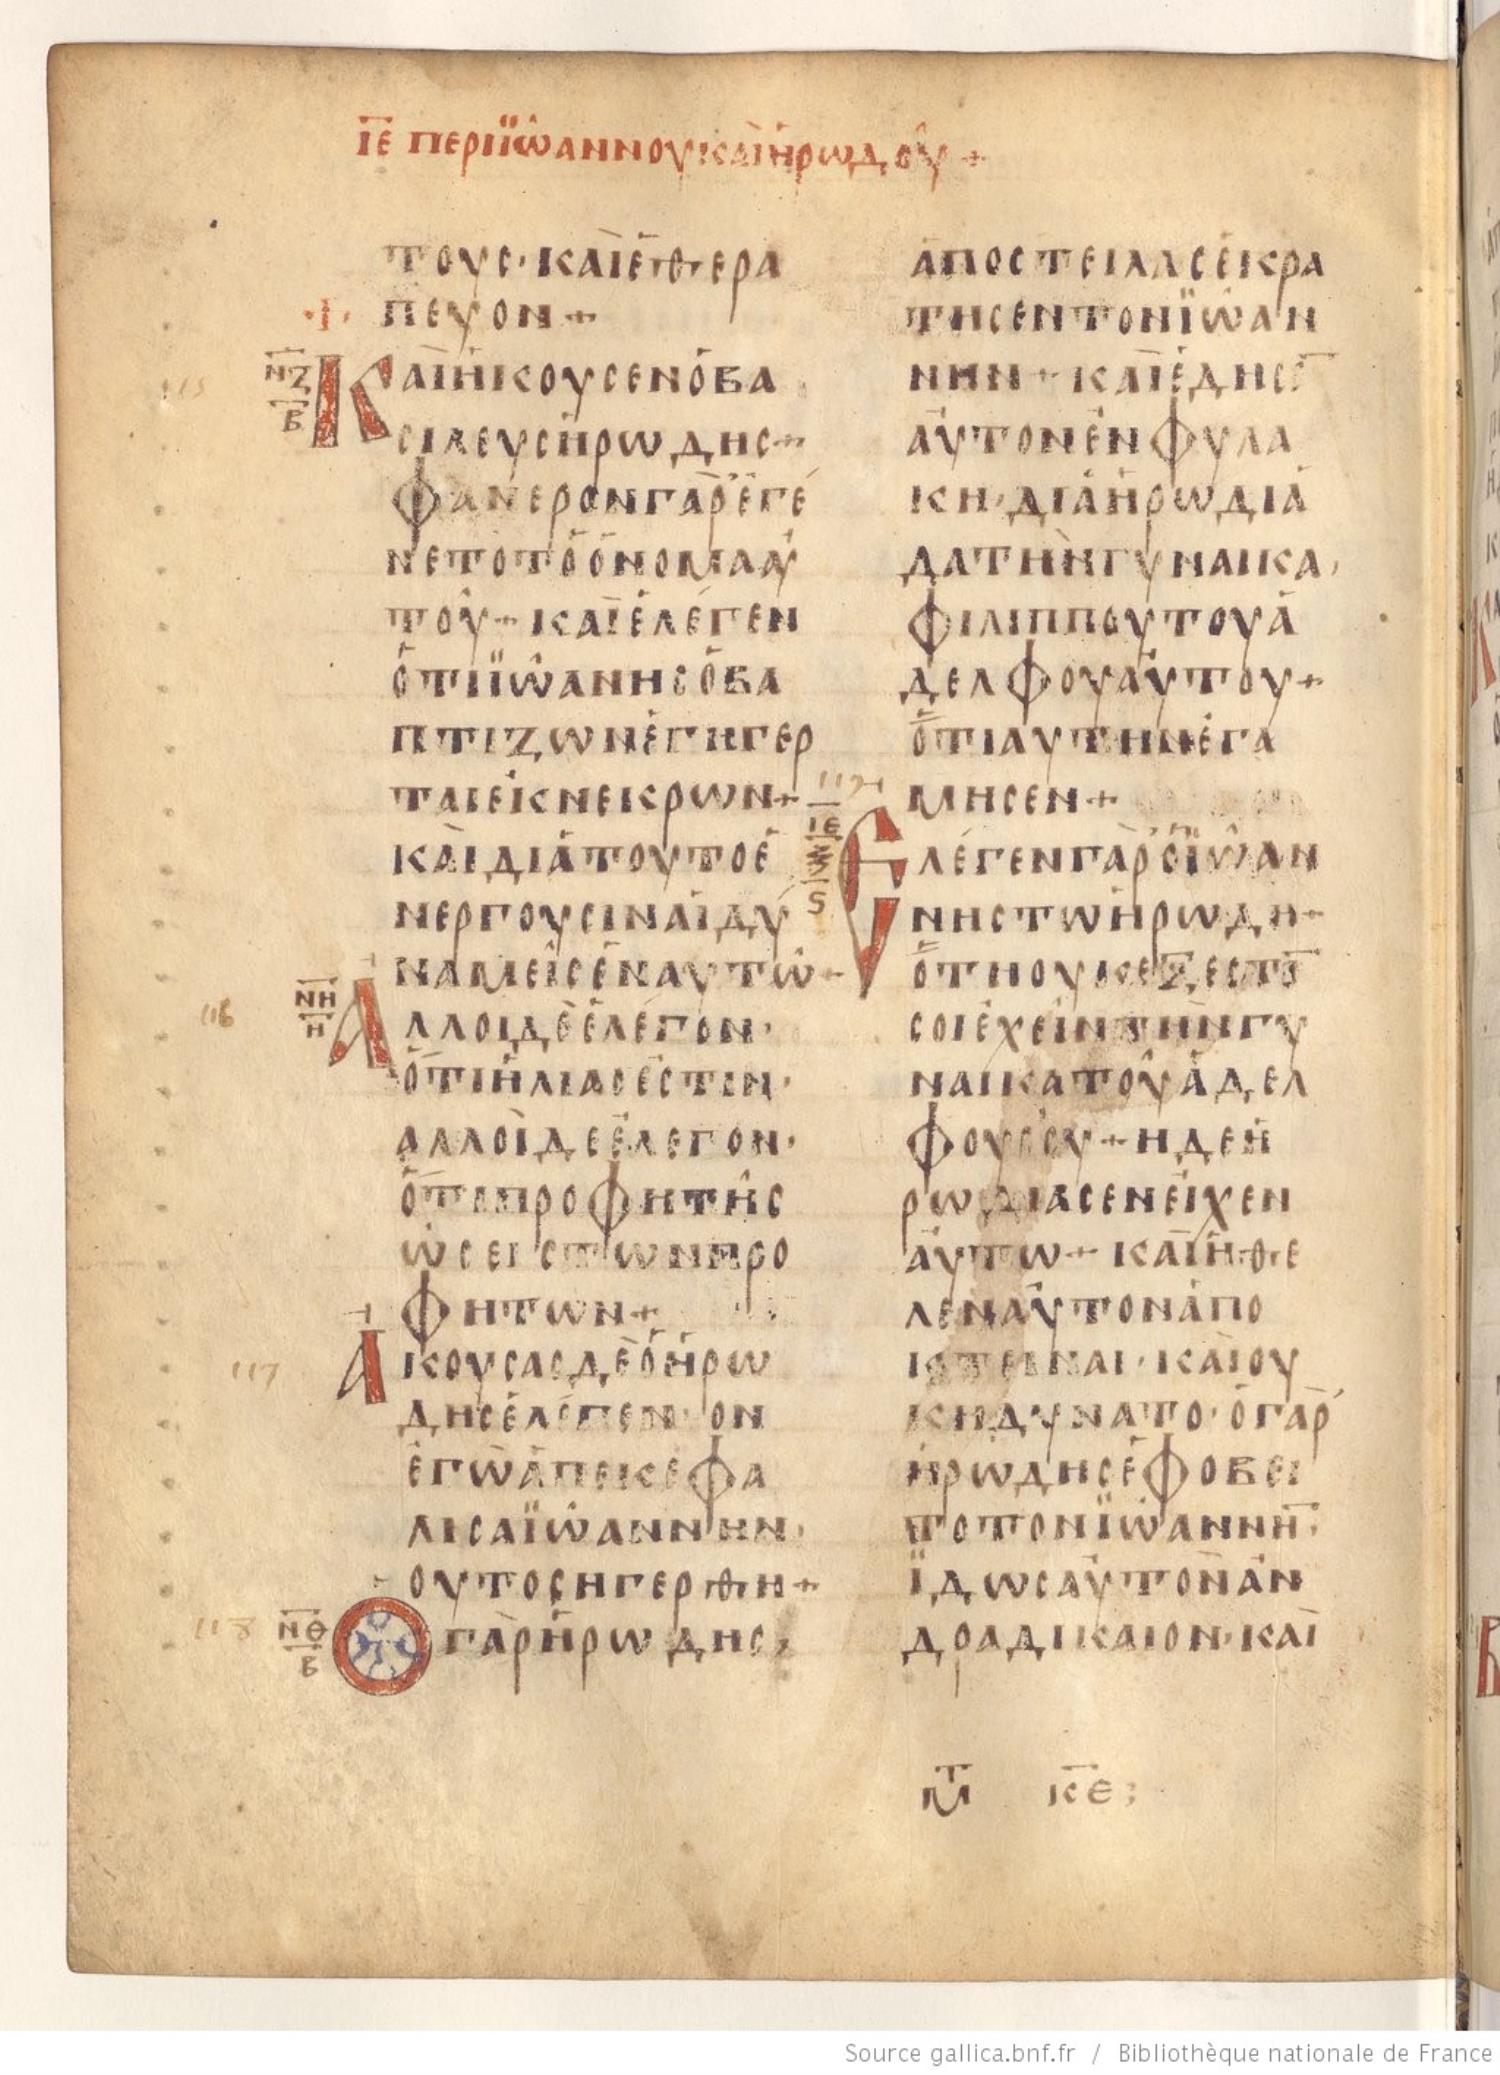 ΙΕ ΠΕΡΙ ΪΩΑΝΝΟΥ ΚΑΙ ΗΡΩΔΟΥ +
ΤΟΥΣ· ΚΑΙ ΕΘΕΡΑ
ΠΕΥΟΝ +
ΝΖ
Β
ΚΑΙ ΗΚΟΥΣΕΝ Ο ΒΑ
ΣΙΛΕΥΣ ΗΡΩΔΗΣ +
ΦΑΝΕΡΟΝ ΓΑΡ ΕΓΕ
ΝΕΤΟ ΤΟ ΟΝΟΜΑ ΑΥ
ΤΟΥ + ΚΑΙ ΕΛΕΓΕΝ
ΟΤΙ ΪΩΑΝΗΣ Ο ΒΑ
ΠΤΙΖΩΝ ΕΓΗΓΕΡ
ΤΑΙ ΕΚ ΝΕΚΡΩΝ +
ΚΑΙ ΔΙΑ ΤΟΥΤΟ Ε
ΝΕΡΓΟΥΣΙΝ ΑΙ ΔΥ
ΝΑΜΕΙΣ ΕΝ ΑΥΤΩ +
116
ΝΗ
Η
ΑΛΛΟΙ ΔΕ ΕΛΕΓΟΝ·
ΟΤΙ ΗΛΙΑΣ ΕΣΤΙΝ·
ΑΛΛΟΙ ΔΕ ΕΛΕΓΟΝ·
ΟΤΙ ΠΡΟΦΗΤΗΣ
ΩΣ ΕΙΣ ΤΩΝ ΠΡΟ
ΦΗΤΩΝ +
117
ΑΚΟΥΣΑΣ ΔΕ Ο ΗΡΩ
ΔΗΣ ΕΛΕΓΕΝ· ΟΝ
ΕΓΩ ΑΠΕΚΕΦΑ
ΛΙΣΑ ΪΩΑΝΝΗΝ·
ΟΥΤΟΣ ΗΓΕΡΘΗ +
118
ΝΘ
Β
Ο ΓΑΡ ΗΡΩΔΗΣ,
ΑΠΟΣΤΕΙΛΑΣ ΕΚΡΑ
ΤΗΣΕΝ ΤΟΝ ΪΩΑΝ
ΝΗΝ + ΚΑΙ ΕΔΗΣΕ̅
ΑΥΤΟΝ ΕΝ ΦΥΛΑ
ΚΗ· ΔΙΑ ΗΡΩΔΙΑ
ΔΑ ΤΗΝ ΓΥΝΑΙΚΑ,
ΦΙΛΙΠΠΟΥ ΤΟΥ Α
ΔΕΛΦΟΥ ΑΥΤΟΥ +
ΟΤΙ ΑΥΤΗΝ ΕΓΑ
ΜΗΣΕΝ +
ΙΕ
Ξ
Ϛ
ΕΛΕΓΕΝ ΓΑΡ Ο ΪΩΑΝ
ΝΗΣ ΤΩ ΗΡΩΔΗ +
ΟΤΗ ΟΥΚ ΕΞΕΣΤΙ̅
ΣΟΙ ΕΧΕΙΝ ΤΗΝ ΓΥ
ΝΑΙΚΑ ΤΟΥ ΑΔΕΛ
ΦΟΥ ΣΟΥ + Η ΔΕ Η
ΡΩΔΙΑΣ ΕΝΕΙΧΕΝ
ΑΥΤΩ + ΚΑΙ ΗΘΕ
ΛΕΝ ΑΥΤΟΝ ΑΠΟ
ΚΤΕΙΝΑΙ· ΚΑΙ ΟΥ
Κ ΗΔΥΝΑΤΟ· Ο ΓΑΡ
ΗΡΩΔΗΣ ΕΦΟΒΕΙ
ΤΟ ΤΟΝ ΪΩΑΝΝΗ̅·
ΪΔΩΣ ΑΥΤΟΝ ΑΝ
ΔΡΑ ΔΙΚΑΙΟΝ· ΚΑΙ
ΚΕ
Source gallica.bnf.fr / Bibliothèque nationale de France